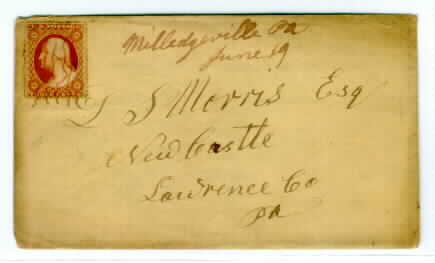 Milledgeville Pa
June 19
D S Morris Esq
New Castle
Lawrence Co
Pa